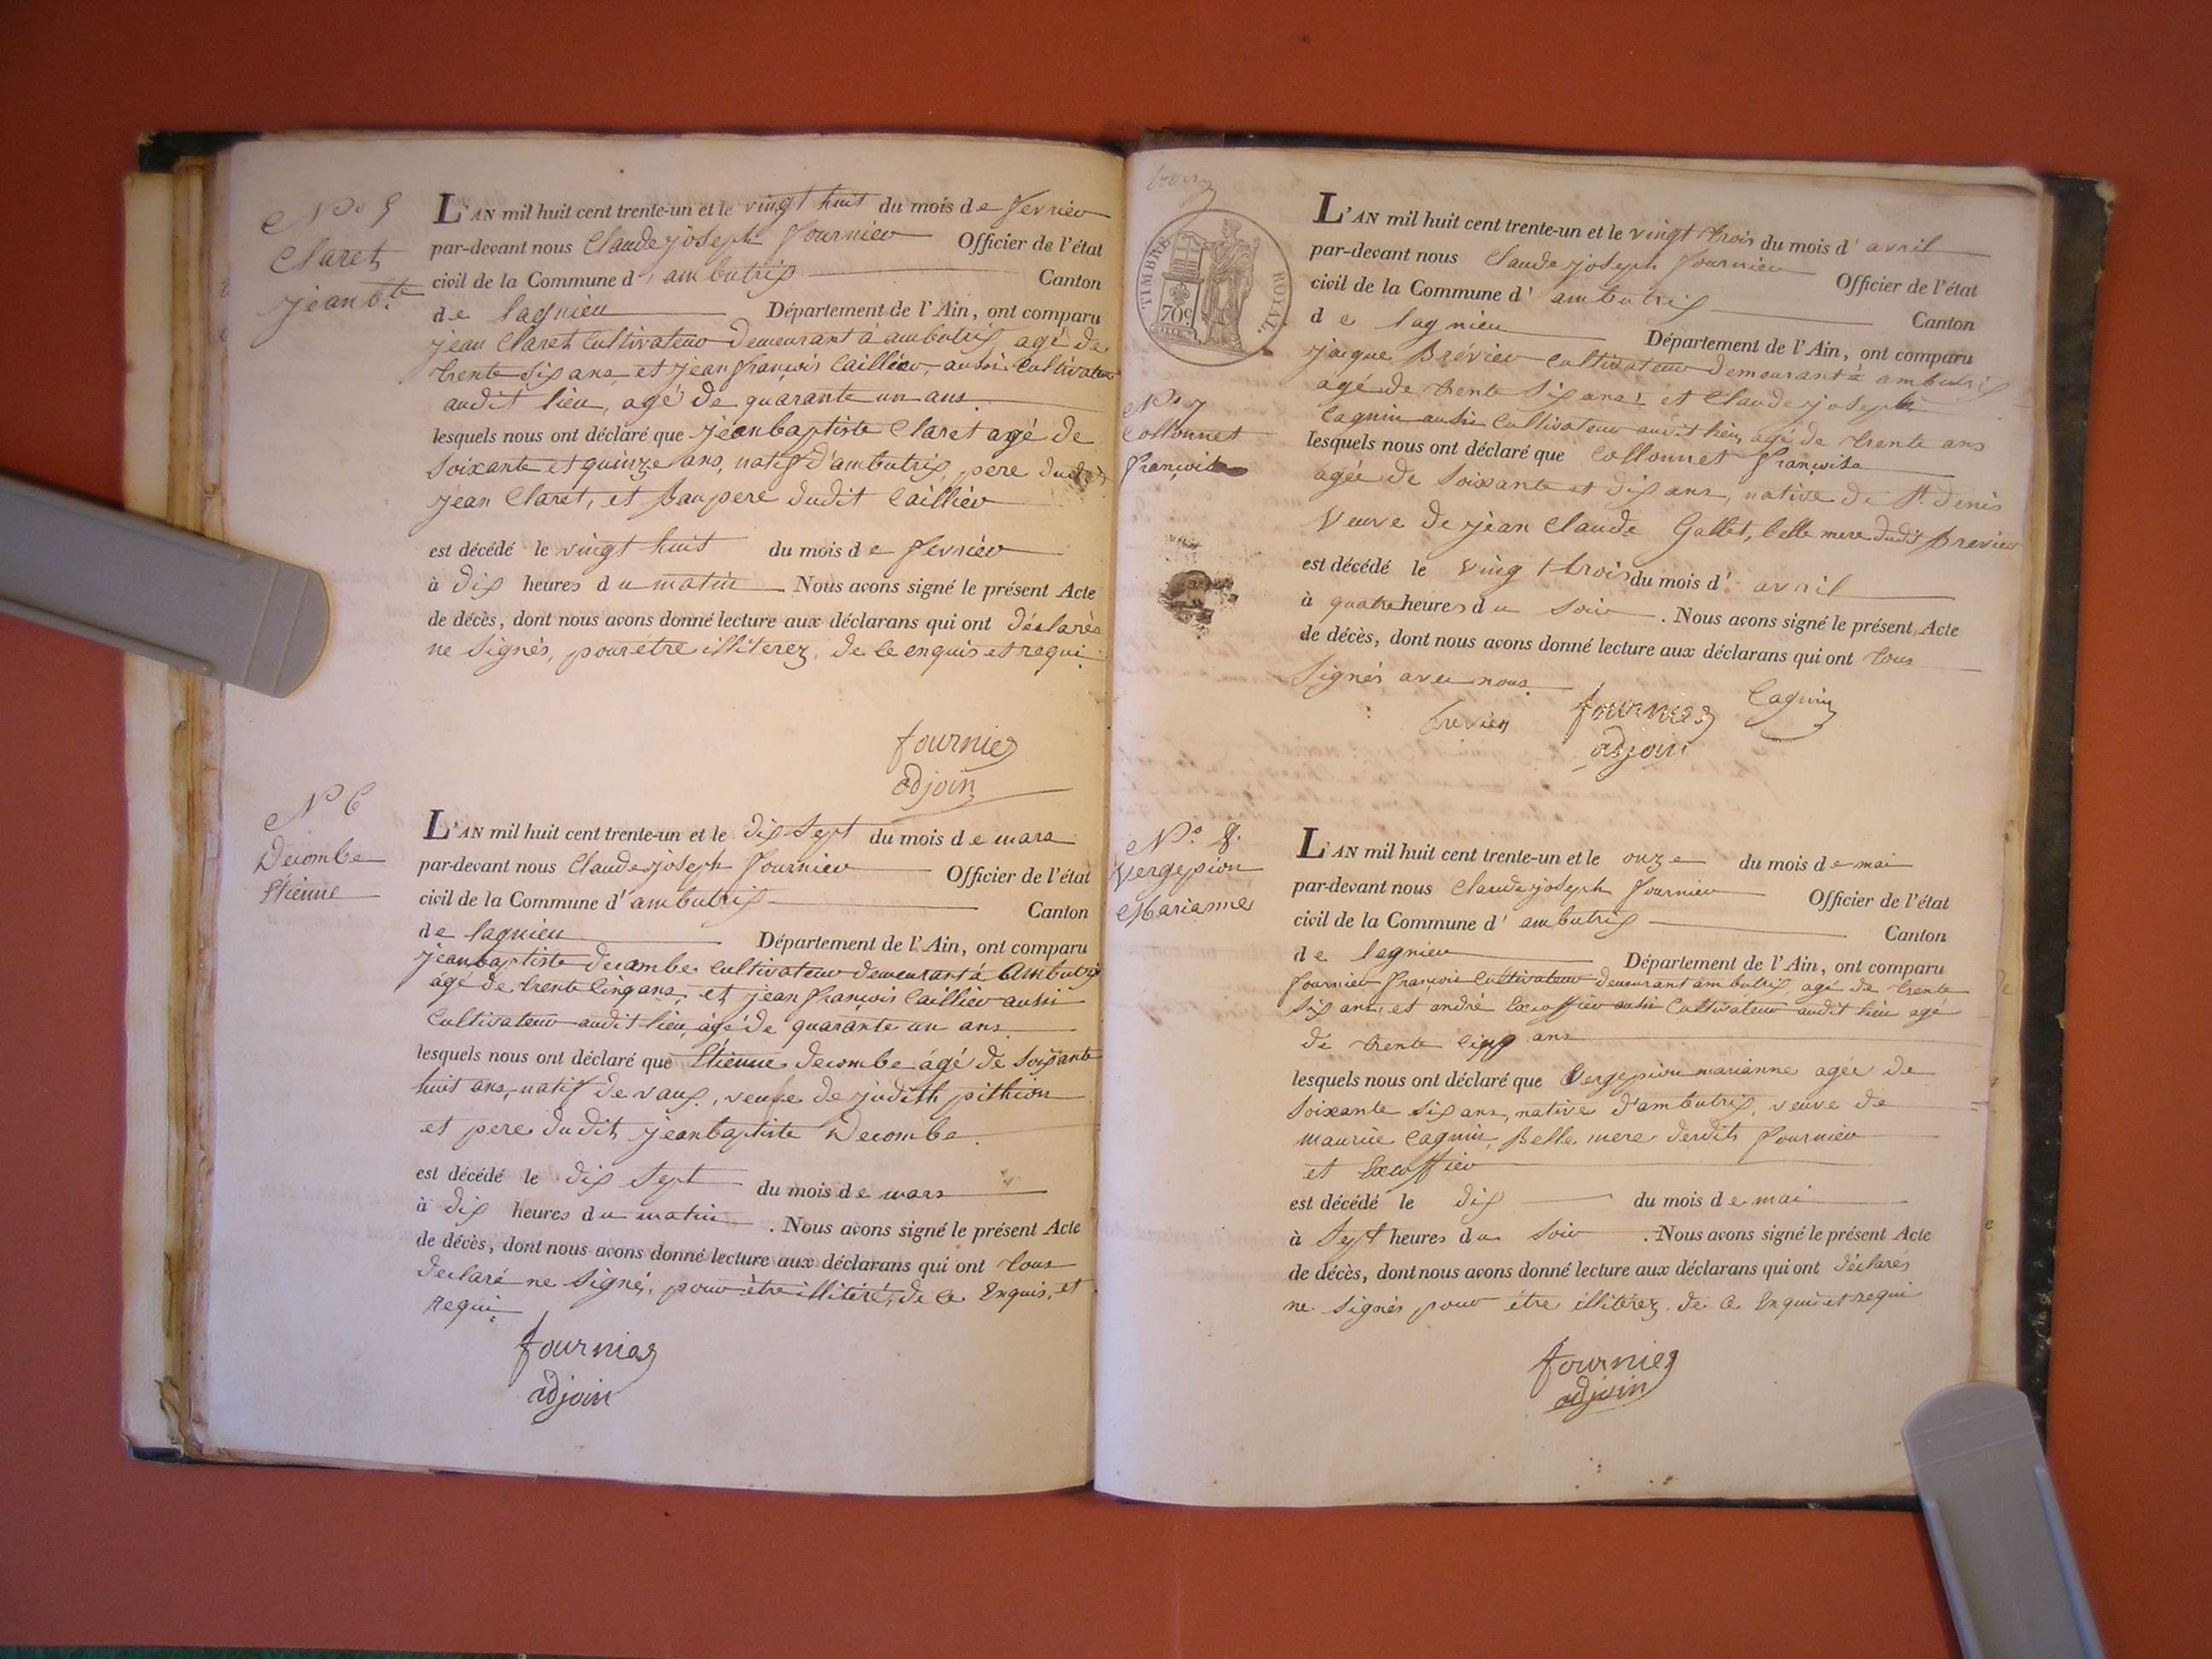 N° 5
Claret
jean bte
L'AN mil huit cent trente-un et le vingt huit du mois de fevrier
par-devant nous Claude joseph fournier Officier de l'état
civil de la Commune d'ambutrix Canton
de lagnieu Département de l'Ain, ont comparu
jean Claret Cultivateur demeurant à ambutrix, agé de
trente six ans, et jean françois Caillier, aussi Cultivateur
audit lieu, agé de quarante un ans
lesquels nous ont déclaré que jean baptiste Claret agé de
soixante et quinze ans, natif d'ambutrix, pere dudit
jean Claret, et baupere dudit Caillier
est décédé le vingt huit du mois de fevrier
à dix heures du matin Nous avons signé le présent Acte
de décès, dont nous avons donné lecture aux déclarans qui ont déclarés
ne signés, pour étre illiterez, de ce enquis et requi
fournier
adjoin
N° 6
Decombe
Etienne
L'AN mil huit cent trente-un et le dix sept du mois de mars
par-devant nous Claude joseph fournier Officier de l'état
civil de la Commune d'ambutrix Canton
de lagnieu Département de l'Ain, ont comparu
jean baptiste decombe Cultivateur demeurant à Ambutrix
âgé de trente cinq ans, et jean françois Caillier aussi
Cultivateur audit lieu, âgé de quarante un ans
lesquels nous ont déclaré que Etienne decombe âgé de soixante
huit ans, natif de vaux, veufve de judith pithion
et pere dudit jean baptiste Decombe.
est décédé le dix sept du mois de mars
à dix heures du matin . Nous avons signé le présent Acte
de décès, dont nous avons donné lecture aux déclarans qui ont tous
declaré ne signé, pour être illitéré, de ce Enquis, et
requi
fournier
adjoin
TIMBRE ROYAL
70c
N° 7
Collonnet
françoise
L'AN mil huit cent trente-un et le vingt trois du mois d'avril
par-devant nous Claude joseph fournier Officier de l'état
civil de la Commune d'ambutrix Canton
de lagnieu Département de l'Ain, ont comparu
jacque Brévier Cultivateur demeurant à ambutrix
agé de trente six ans, et Claude joseph
Cagnin aussi Cultivateur audit lieu, agé de trente ans
lesquels nous ont déclaré que Collonnet françoise
agée de soixante et dix ans, native de St. denis
veuve de jean Claude Gallet, belle mere dudit Brevier
est décédé le vingt trois du mois d'avril
à quatre heures du soir . Nous avons signé le présent Acte
de décès, dont nous avons donné lecture aux déclarans qui ont tous
signés avec nous.
brevier fournier Cagnin
adjoin
N° 8.
Vergepion
Marianne
L'AN mil huit cent trente-un et le onze du mois de mai
par-devant nous Claude joseph fournier Officier de l'état
civil de la Commune d'ambutrix Canton
de lagnieu Département de l'Ain, ont comparu
fournier françois Cultivateur demeurant ambutrix, agé de trente
six ans, et andré Excoffier aussi Cultivateur audit lieu agé
de trente cinq ans
lesquels nous ont déclaré que Vergepion marianne agée de
soixante six ans, native d'ambutrix, veuve de
maurice Cagnin, Belle mere desdits fournier
et Excoffier
est décédé le dix du mois de mai
à sept heures du soir . Nous avons signé le présent Acte
de décès, dont nous avons donné lecture aux déclarans qui ont déclarés
ne signés pour étre illitérez. de ce Enquis et requi
fournier
adjoin